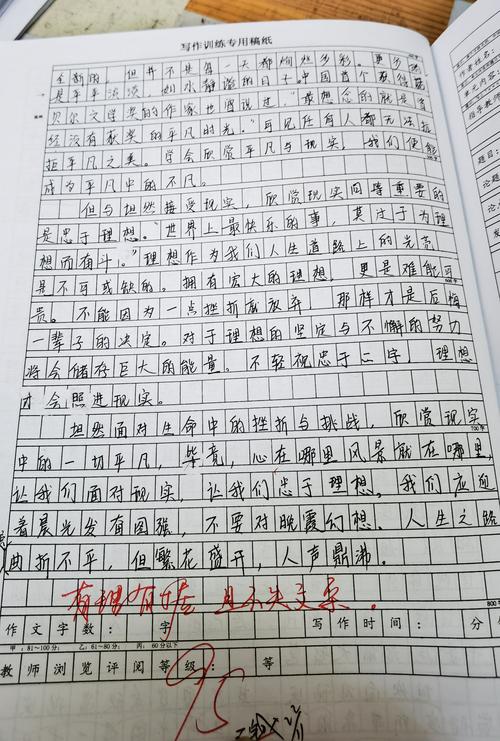 写作训练专用稿纸
全新的。但并不是每一天都绚烂多彩。更多的
是平平淡淡,如水静谧的日子。中国首个获得诺
贝尔文学奖的作家也曾说过,“最想念的就是曾
经没有获奖的平凡时光。”可见任何人都无法拒
拒平凡之美。学会欣赏平凡与现实,我们便能
成为平凡中的不凡。
但与坦然接受现实,欣赏现实同等重要的
是忠于理想。“世界上最快乐的事,莫过于为理
想而奋斗。”理想作为我们人生道路上的光亮
是不可或缺的。拥有宏大的理想,更是难能可
600字
贵。不能因为一点挫折就放弃,那样才是后悔
一辈子的决定。对于理想的坚定与不懈的努力
将会储存巨大的能量。不轻视忠于二字,理想
才会照进现实。
坦然面对生命中的挫折与挑战,欣赏现实
700字
中的一切平凡,毕竟,心在哪里风景就在哪里,
让我们面对现实,让我们忠于理想。我们应迎
着晨光发奋图强,不要对晚霞幻想。人生之路
曲折不平,但繁花盛开,人声鼎沸。
有理有据 且不失文采。
800字
作文字数: 字 写作时间: 分
甲:81~100分 乙:61~80分 丙:60分以下
教师浏览评阅等级: 等
95
作者姓名
单元内容
指导教师
题目:
论题
论点
论据